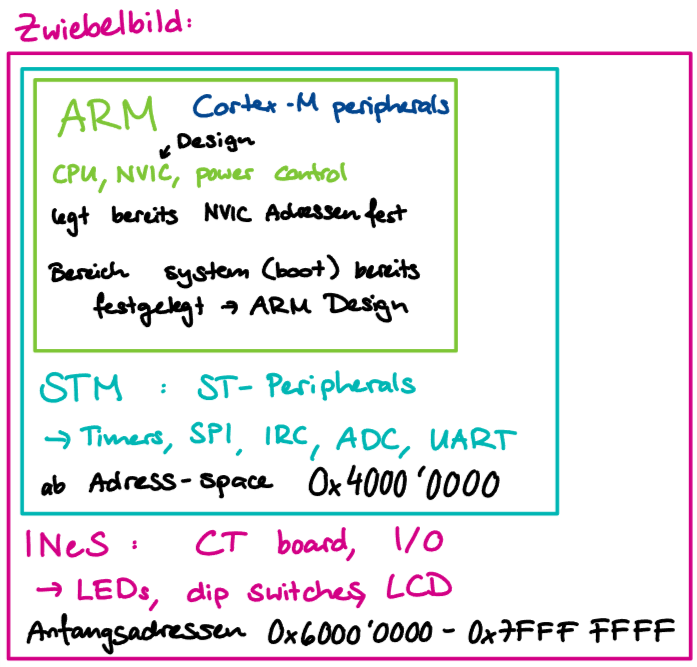 Zwiebelbild:
ARM Cortex-M peripherals
Design
CPU, NVIC, power control
legt bereits NVIC Adressen fest
Bereich system (boot) bereits
festgelegt → ARM Design
STM : ST-Peripherals
→ Timers, SPI, IRC, ADC, UART
ab Adress-space 0x4000'0000
INeS : CT board, I/O
→ LEDs, dip switches, LCD
Anfangsadressen 0x6000'0000 - 0x7FFF FFFF